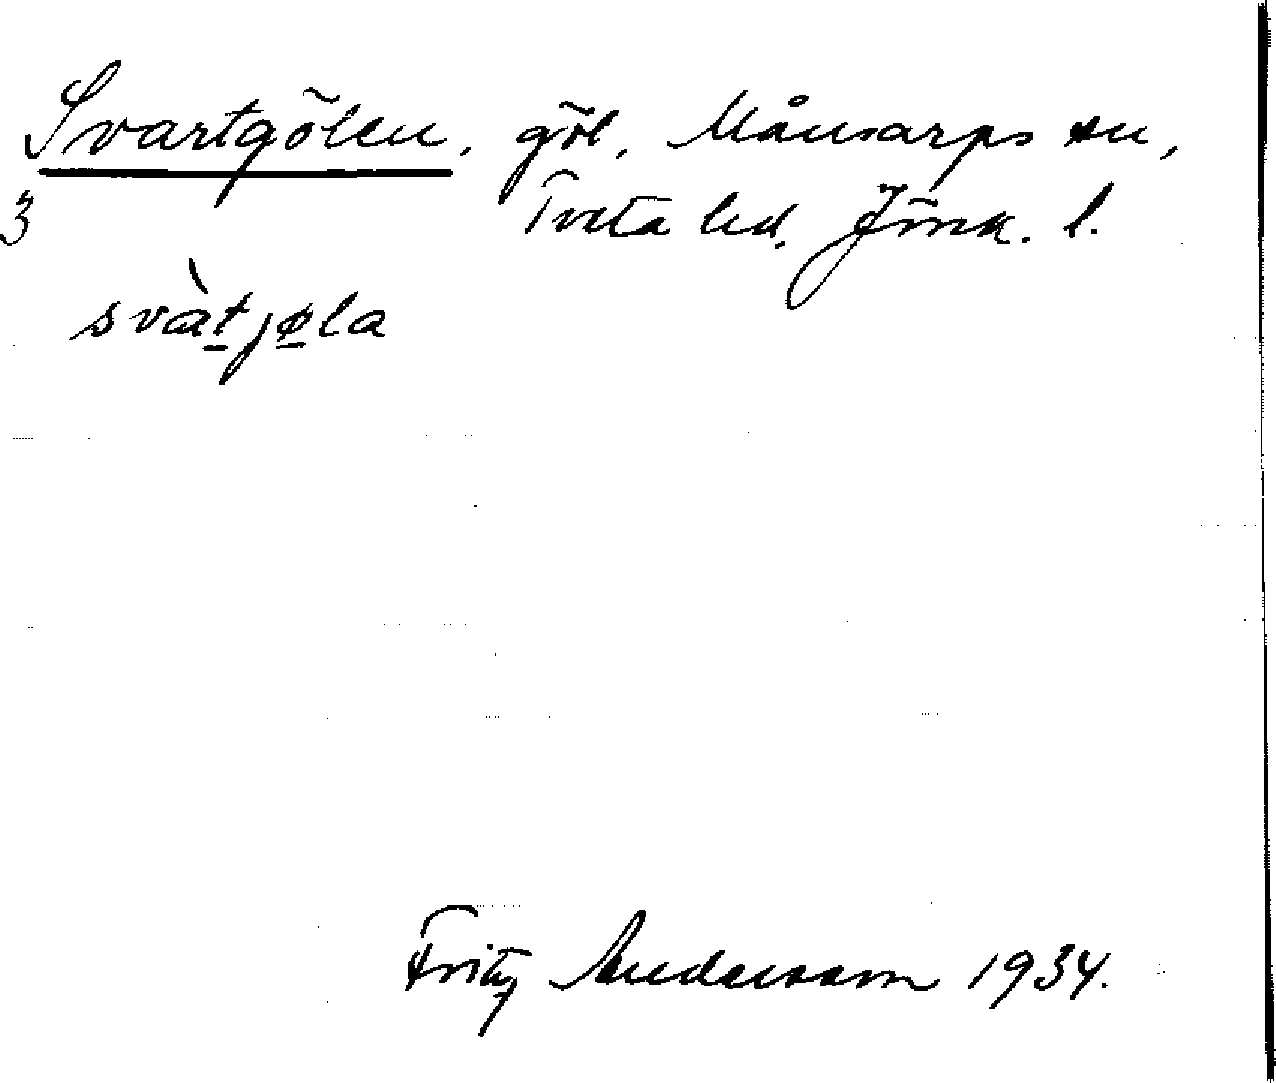 Svartgölen, göl, Månsarps sn,
3 Tveta hd. Jönk. l.
svàt̠jø̠la
Fritz Andersson 1934.